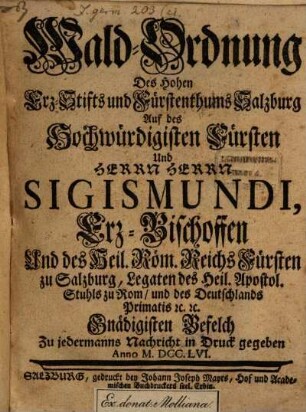 J. germ 203 (e)
Wald-Ordnung
Des Hohen
Erz-Stifts und Fürstenthums Salzburg
Auf des
Hochwürdigisten Fürsten
Und
HERRN HERRN
SIGISMUNDI,
Erz-Bischoffen
Und des Heil. Röm. Reichs Fürsten
zu Salzburg, Legaten des Heil. Apostol.
Stuhls zu Rom/ und des Deutschlands
Primatis ꝛc. ꝛc.
Gnädigisten Befelch
Zu jedermanns Nachricht in Druck gegeben
Anno M. DCC. LVI.
SALZBURG, gedruckt bey Johann Joseph Mayrs, Hof und Acade-
mischen Buchdruckers seel. Erbin.
Ex donat. Molliana.